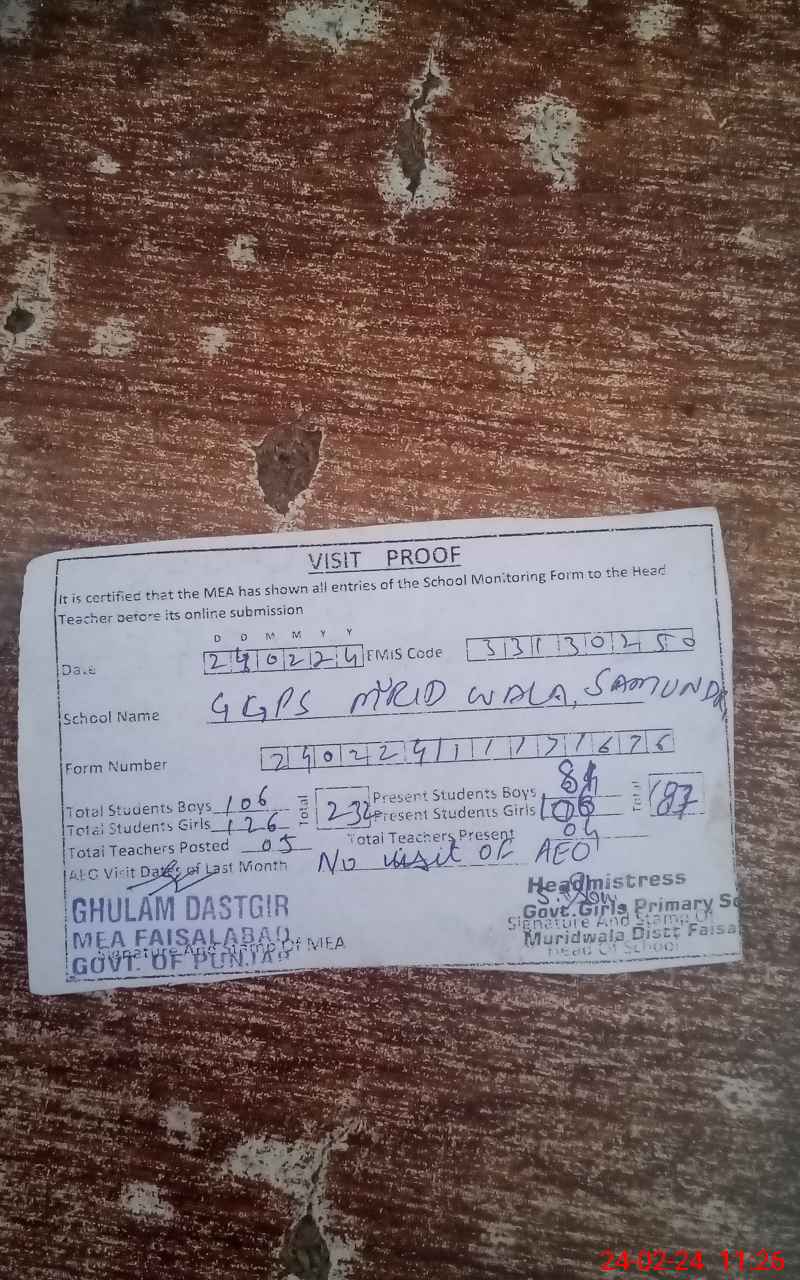 VISIT PROOF
It is certified that the MEA has shown all entries of the School Monitoring Form to the Head
Teacher before its online submission
D D M M Y Y
Date 240224 EMIS Code 33130250
School Name GGPS MURID WALA, SAMUNDRI
Form Number
Total Students Boys 106 Total 232 Present Students Boys 81 Total 187
Total Students Girls 126 Present Students Girls 106
Total Teachers Posted 05 Total Teachers Present 04
AEO Visit Dates of Last Month No visit of AEO
GHULAM DASTGIR
MEA FAISALABAD
GOVT. OF PUNJAB
Signature And Stamp Of MEA
Headmistress
Govt. Girls Primary Sc
Signature And Stamp Of
Muridwala Distt Faisa
Head Of School
24-02-24 11:26